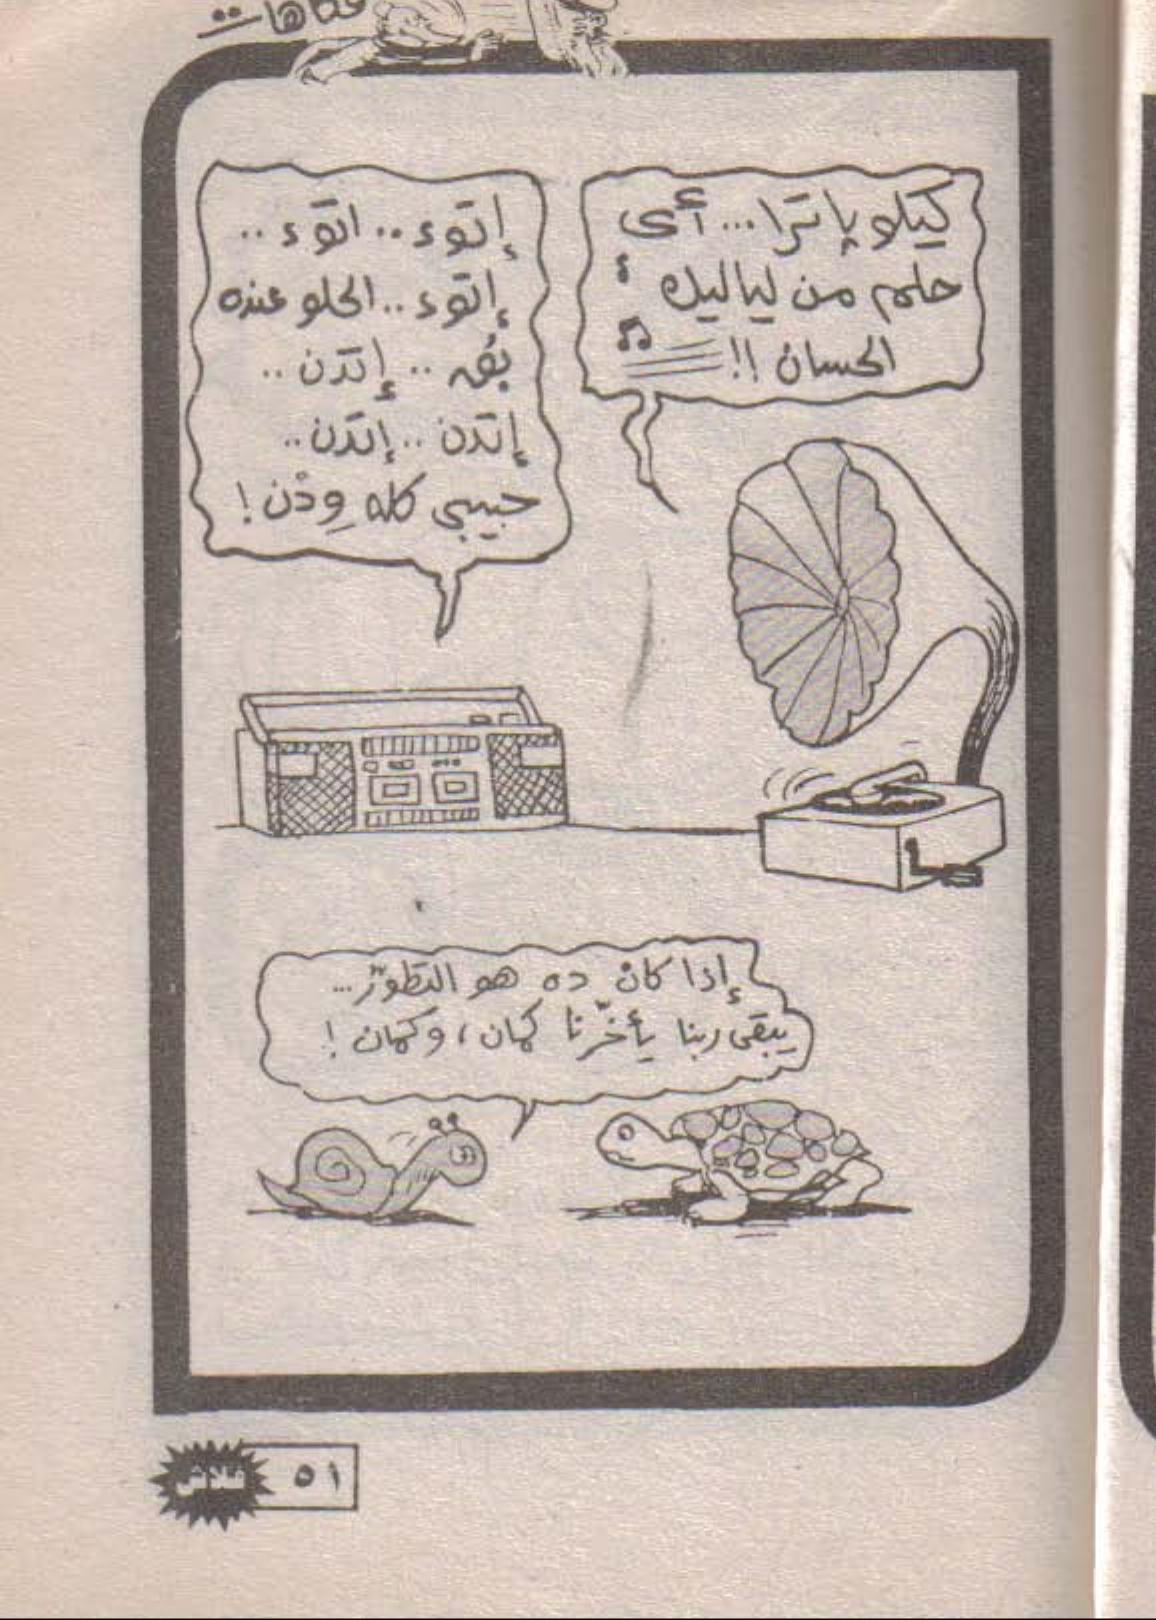 فكاهات
كيلو پاترا... أى
حلم من لياليك
الحسان !!
إتوء .. اتوء ..
إتوء .. الحلو عنده
بُق .. إتدن ..
إتدن .. إتدن ..
حبيبى كله وِدْن !
إذا كان ده هو التطوّر ...
يبقى ربنا يأخّرنا كمان ، وكمان !
فلاش
٥١